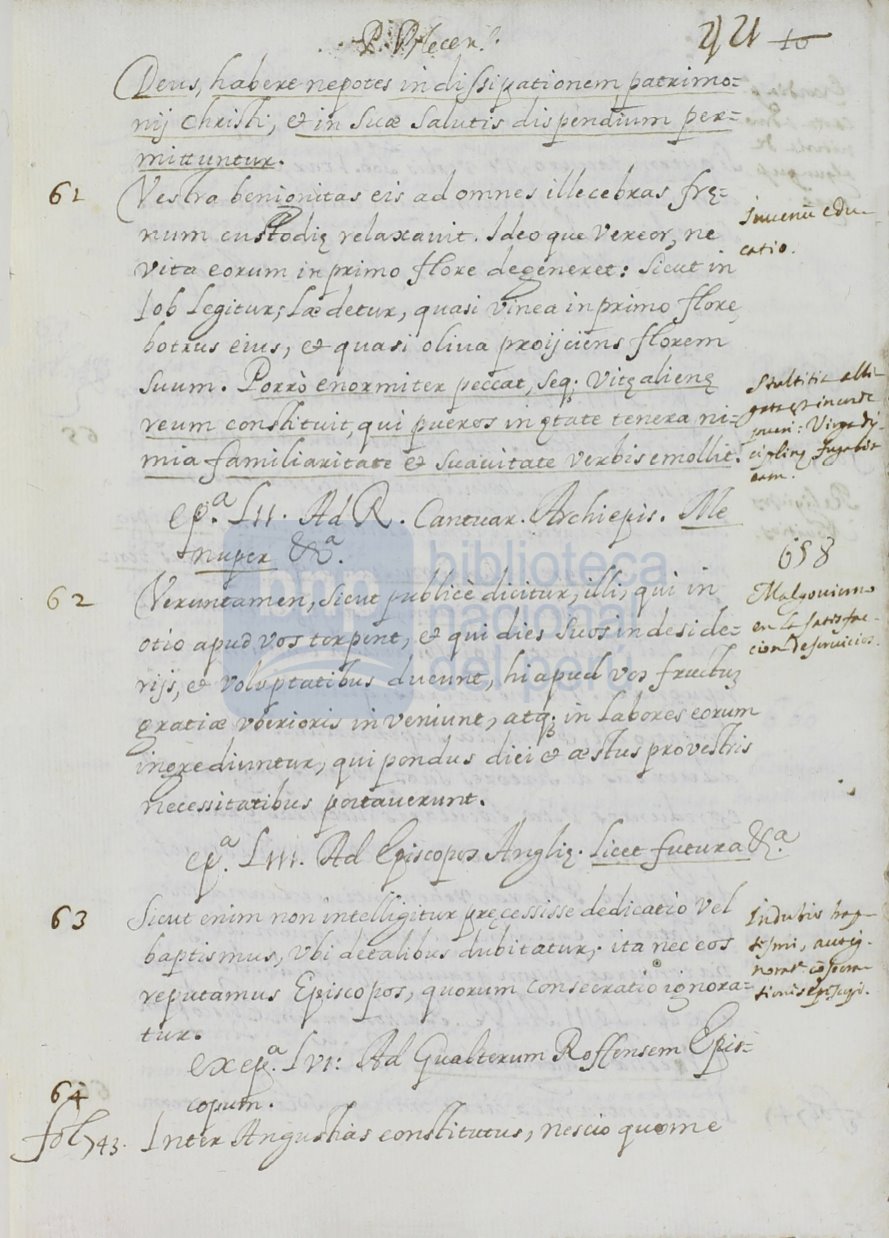 421 10
Deus, habere nepotes in dissipationem patrimo=
nij Christi, & in suæ salutis dispendium per=
mittuntur.
61 Vestra benignitas eis ad omnes illecebras frę=
num custodię relaxauit. Ideo que vereor, ne
vita eorum in primo flore degeneret: Sicut in
Iob Legitur; Lædetur, quasi vinea in primo flore,
botrus eius, & quasi oliua proijciens florem
suum. Porrò enormiter peccat, seq; vitę alienę
reum constituit, qui pueros in ętate tenera ni=
mia familiaritate & suauitate verbis emollit.
Iuuenũ edu=
catio.
Stultitia alli=
gata est in corde
pueri: Virga di=
sciplinę fugabit
eam.
epª. LII. Ad R. Cantuar. Archiepis. Me
nuper &ª.
658
62 Veruntamen, sicut publicè dicitur, illi, qui in
otio apud vos torpent, & qui dies suos in deside=
rijs, & voluptatibus ducunt, hi apud vos fructus
gratiæ vberioris inveniunt, atq; in Labores eorum
ingrediuntur, qui pondus diei & æstus pro vestris
necessitatibus portauerunt.
Mal gouierno
en la satisfa=
cion de seruicios.
epª. LIII. Ad Episcopos Anglię. Licet futura &ª.
63 Sicut enim non intelligitur pręcessisse dedicatio vel
baptismus, vbi de talibus dubitatur; ita nec eos
reputamus Episcopos, quorum consecratio ignora=
tur.
In dubijs bap=
tismi, aut ig=
norat cõsecra=
tionis episcopi.
ex epª. LVI: Ad Gualterum Roffensem Epis=
copum.
64
fol 743. Inter Angustias constitutus, nescio quo me
biblioteca
nacional
del perú
bnp